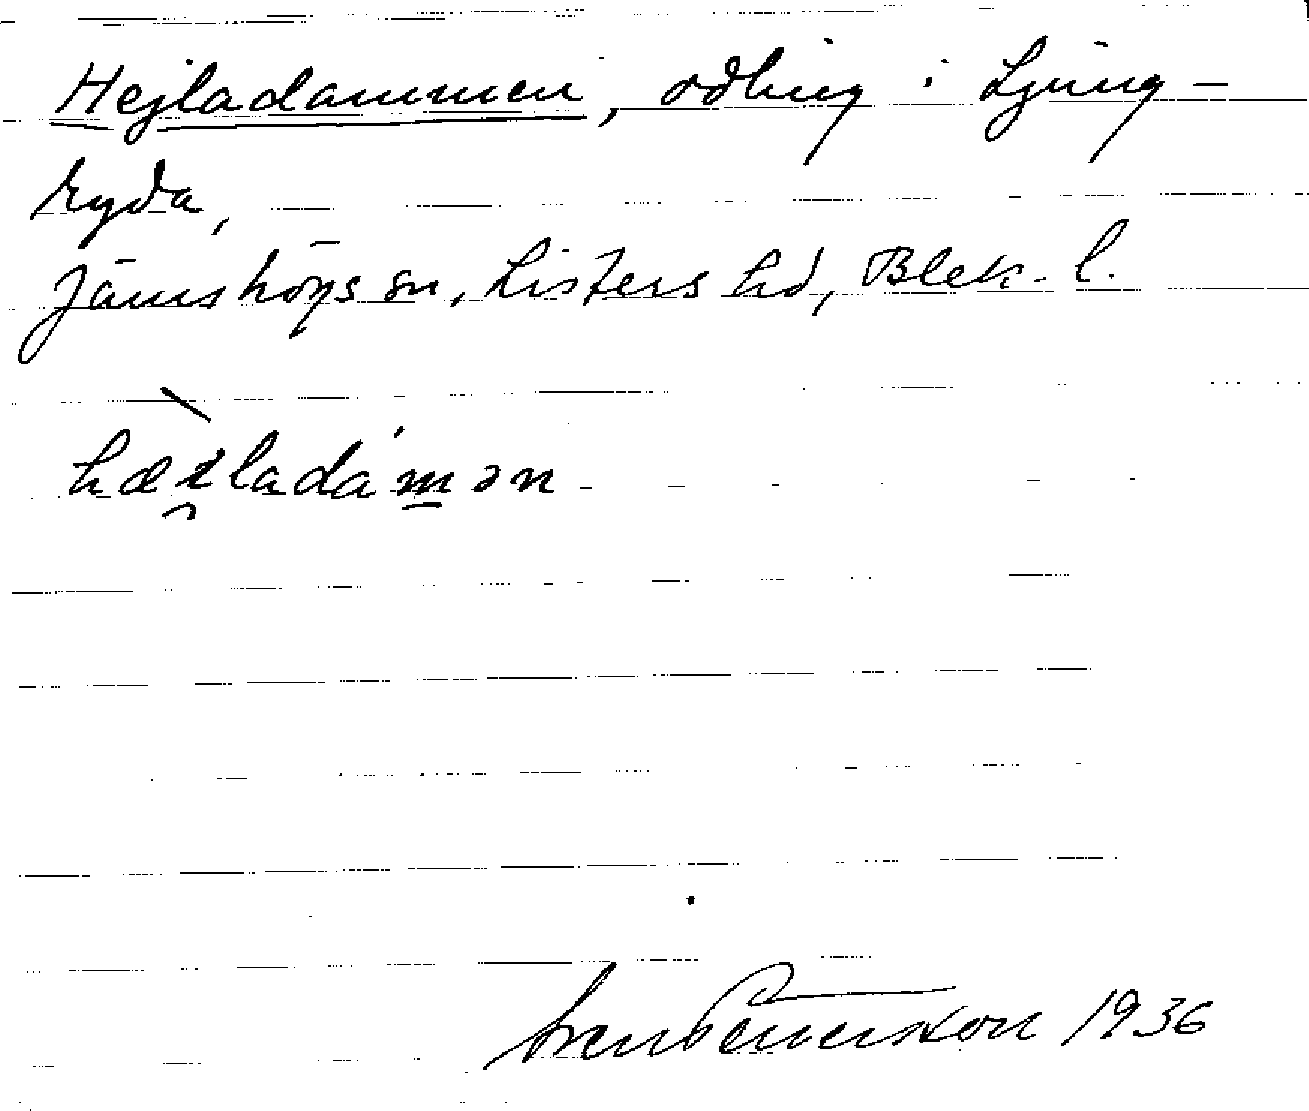 Hejladammen, odling i Ljung-
ryda,
Jämshögs sn, Listers hd, Blek. l.
hæi̯ladam̲ən
1936